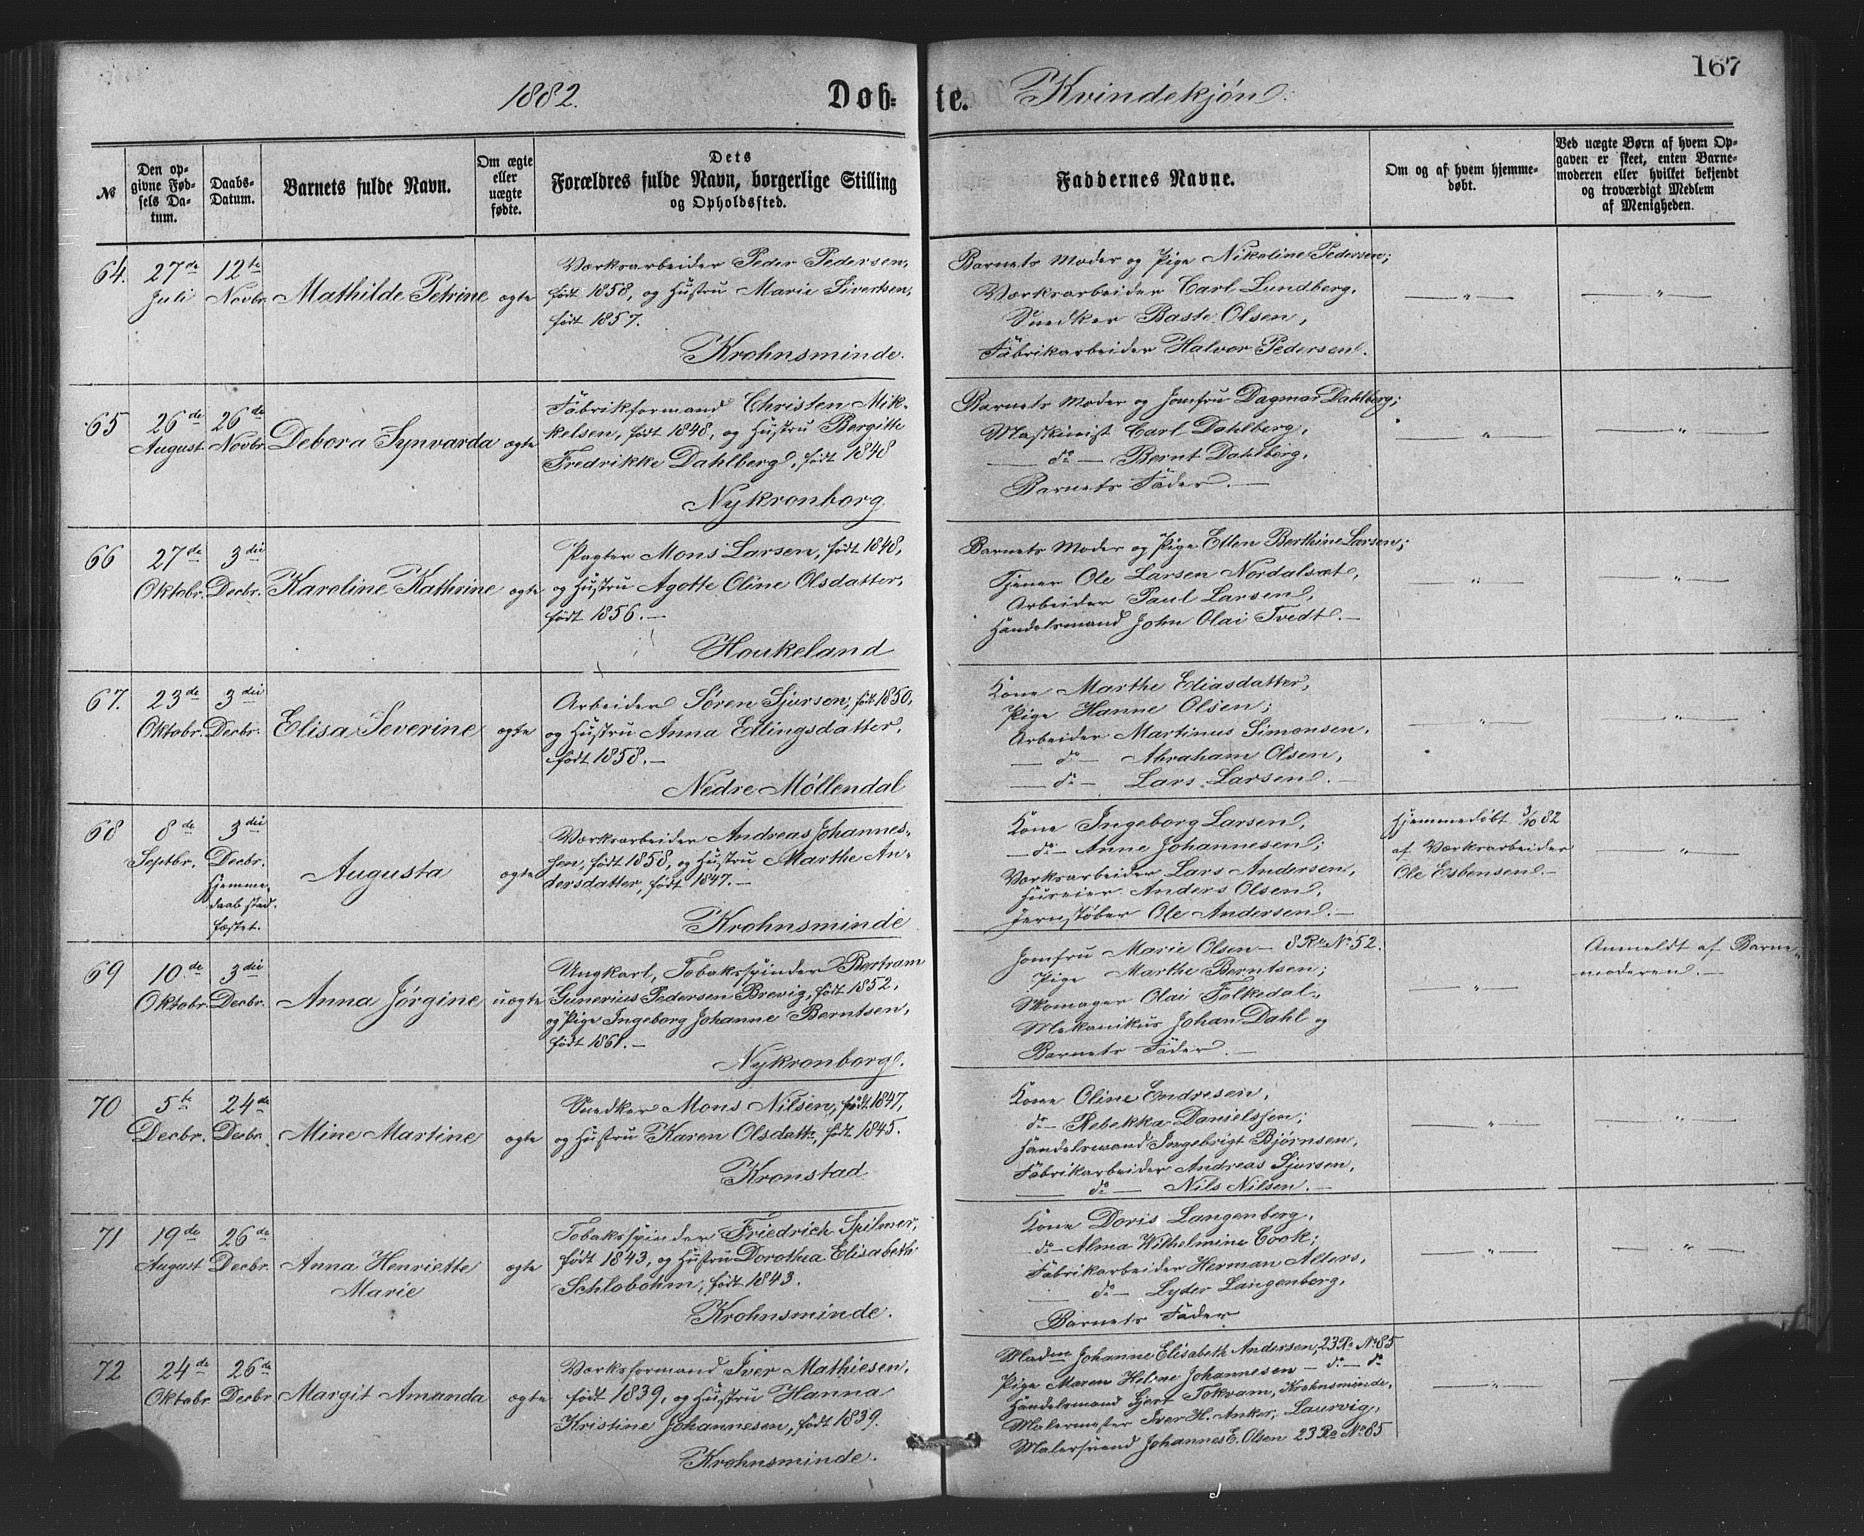 167
1882.
Døb-
te.
Kvindekjøn.
№
Den op-
givne Fød-
sels Da-
tum.
Daabs-
Datum.
Barnets fulde Navn.
Om ægte
eller
uægte
fødte.
Dets
Forældres fulde Navn, borgerlige Stilling
og Opholdssted.
Faddernes Navne.
Om og af hvem hjemme-
døbt.
Ved uægte Børn af hvem Op-
gaven er skeet, enten Barne-
moderen eller hvilket bekjendt
og troværdigt Medlem
af Menigheden.
64.
27de
Juli
12te
Novbr.
Mathilde Petrine
ægte
Værksarbeider Peder Pedersen,
født 1858, og Hustru Marie Sivertsen,
født 1857.
Krohnsminde.
Barnets Moder og Pige Nikoline Pedersen;
Værksarbeider Carl Lundberg,
Snedker Baste Olsen,
Fabrikarbeider Halvor Pedersen.
— " —
— " —
65
26de
August
26de
Novbr.
Debora Synvarda
ægte
Fabrikformand Christen Mik-
kelsen, født 1848, og Hustru Bergitte
Fredrikke Dahlberg, født 1848
Nykronborg
Barnets Moder og Jomfru Dagmar Dahlberg;
Maskinist Carl Dahlberg,
— do — Bernt Dahlberg,
Barnets Fader. —
— " —
— " —
66
27de
Oktobr.
3die
Decbr.
Karoline Kathrine
ægte
Pagter Mons Larsen, født 1848,
og Hustru Agotte Oline Olsdatter,
født 1856. —
Houkeland
Barnets Moder og Pige Ellen Berthine Larsen;
Tjener Ole Larsen Nordalsæt,
Arbeider Paul Larsen,
Handelsmand John Olai Tvedt. —
— " —
— " —
67.
23de
Oktobr.
3die
Decbr.
Elisa Severine
ægte
Arbeider Søren Sjursen, født 1850,
og Hustru Anna Ellingsdatter,
født 1858. —
Nedre Møllendal
Kone Marthe Eliasdatter,
Pige Hanne Olsen;
Arbeider Martinus Simonsen,
— do — Abraham Olsen,
— do — Lars Larsen. —
— " —
— " —
68
8de
Septbr.
3die
Decbr.
Hjemme-
daab stad-
fæstet.
Augusta
ægte
Værksarbeider Andreas Johannes-
sen, født 1858, og Hustru Marthe An-
dersdatter, født 1847. —
Krohnsminde
Kone Ingeborg Larsen,
— do — Anne Johannesen;
Værksarbeider Lars Andersen,
Huseier Anders Olsen,
Jernstøber Ole Andersen. —
Hjemmedøbt 3/10 82
af Værksarbeider
Ole Esbensen. —
— " —
69
10de
Oktobr.
3die
Decbr.
Anna Jørgine
uægte
Ungkarl, Tobaksspinder Bertram
Gunerius Pedersen Brevig, født 1852,
og Pige Ingeborg Johanne Berntsen,
født 1861. —
Nykronborg.
Jomfru Marie Olsen — 8 Ro No 52.
Pige Marthe Berntsen;
Skomager Olai Folkedal,
Mekanikus Johan Dahl og
Barnets Fader. —
— " —
Anmeldt af Barne-
moderen. —
70
5te
Decbr.
24de
Decbr.
Mine Martine
ægte
Snedker Mons Nilsen, født 1847,
og Hustru Karen Olsdatt, født 1845.
Kronstad
Kone Oline Endresen,
do — Rebekka Danielssen;
Handelsmand Ingebrigt Bjørnsen,
Fabrikarbeider Andreas Sjursen,
— do — Nils Nilsen. —
— " —
— " —
71
19de
August
26de
Decbr.
Anna Henriette
Marie
ægte
Tobaksspinder Friedrich Spilmer,
født 1843, og Hustru Dorothea Elisabeth
Schlobohm, født 1843.
Krohnsminde.
Kone Doris Langenberg,
do — Alma Wilhelmine Cook;
Fabrikarbeider Herman Alters,
— do — Lyder Langenberg,
Barnets Fader
— " —
— " —
72
24de
Oktobr.
26de
Decbr
Margit Amanda
ægte
Værksformand Iver Mathiesen,
født 1839, og Hustru Hanna
Kristine Johannesen, født 1839.
Krohnsminde.
Madm Johanne Elisabeth Andersen, 23 Ro No 85
Pige Maren Helene Johannesen — do — do
Handelsmand Gjert Tokvam, Krohnsminde,
Malermester Iver H. Anker, Laurvig,
Malersvend Johannes E. Olsen 23 Ro No 85
— " —